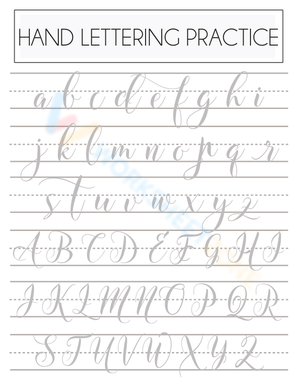 HAND LETTERING PRACTICE
a b c d e f g h i
j k l m n o p q r
s t u v w x y z
A B C D E F G H I
J K L M N O P Q R
S T U V W X Y Z